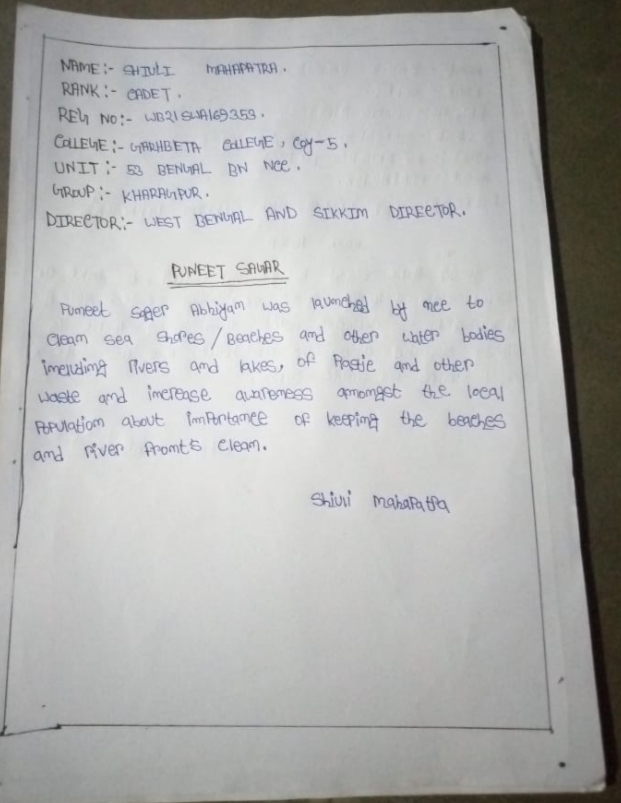 NAME:- SHIULI MAHAPATRA.
RANK:- CADET.
REG NO:- WB21SWA169353.
COLLEGE:- GARHBETA COLLEGE, Coy-5.
UNIT:- 53 BENGAL BN NCC.
GROUP:- KHARAGPUR.
DIRECTOR:- WEST BENGAL AND SIKKIM DIRECTOR.
PUNEET SAGAR
Puneet Sager Abhiyan was launched by ncc to
clean sea shores/Beaches and other water bodies
including rivers and lakes, of Plastic and other
waste and increase awareness amongst the local
Population about importance of keeping the beaches
and river fronts clean.
Shiuli Mahapatra